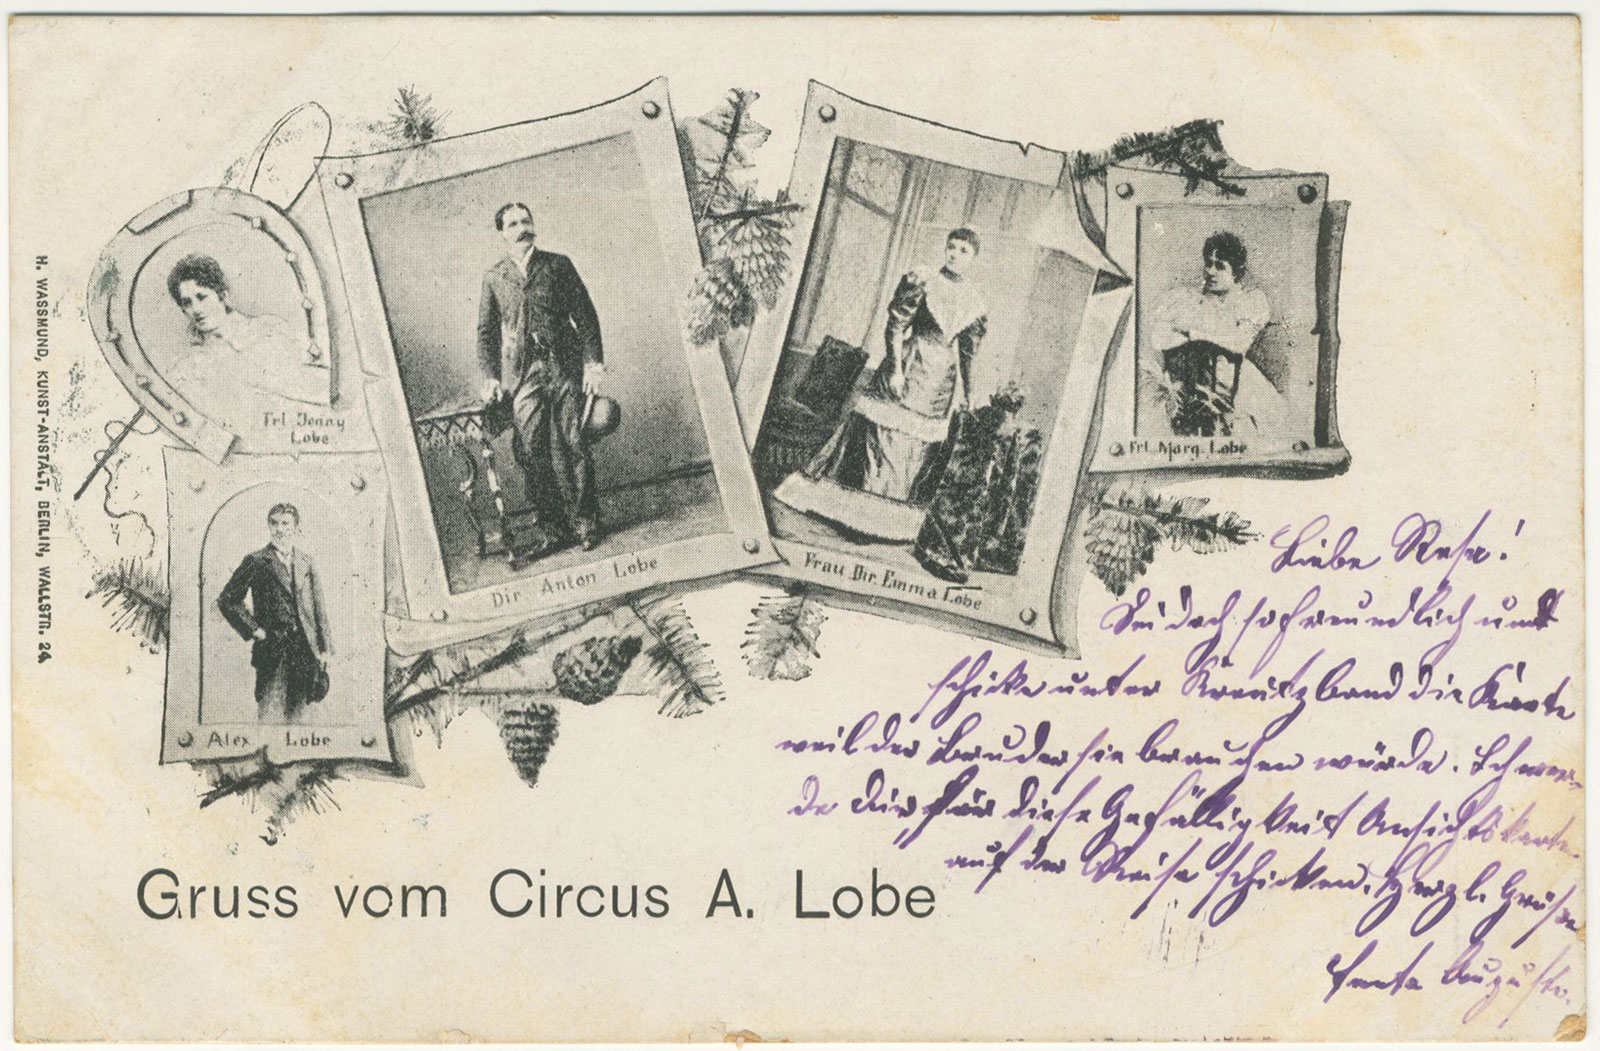 H. WASSMUND, KUNST-ANSTALT, BERLIN, WALLSTR. 24.
Frl Jenny
Lobe
Dir Anton Lobe
Frau Dir. Emma Lobe
Frl. Marg. Lobe
Alex Lobe
Gruss vom Circus A. Lobe
Liebe Resa!
Sei doch so freundlich und
schicke unter Kreutzband die Karte
weil der Bruder sie brauchen würde. Ich wer-
de Dir für diese Gefälligkeit Ansichtskarte
auf der Reise schicken. Herzl. Grüße
Tante Auguste.